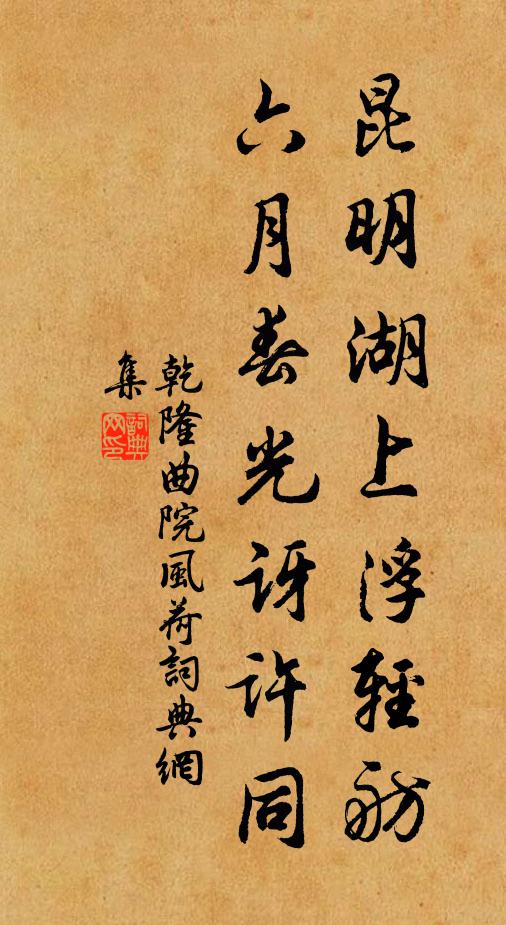 昆明湖上浮輕舫
六月春光訝許同
乾隆曲院風荷詞典網
集
詞典网印